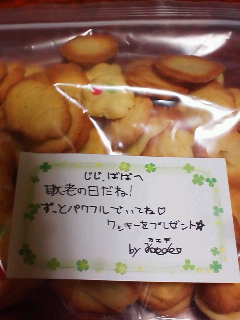 じじ、ばばへ
敬老の日だね!
ずーっとパワフルでいてね♡
クッキーをプレゼント☆
カエデ
by